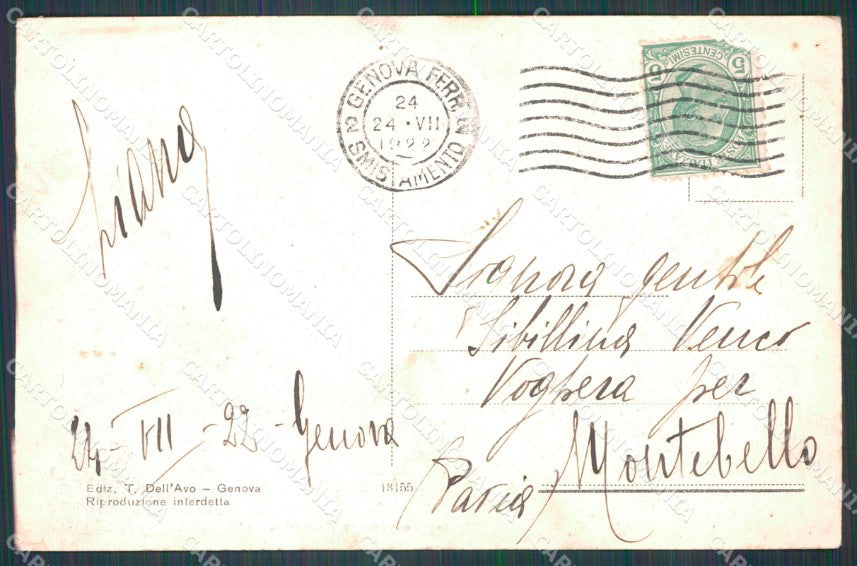 GENOVA FERR. N. 2
24
24 • VII
1922
SMISTAMENTO
CENTESIMI
5 5
Liana
Signora gentile
Sibillina Venco
Voghera per
Montebello
(Pavia)
24 - VII - 22 - Genova
Ediz. T. Dell'Avo – Genova
Riproduzione interdetta
13155
CARTOLINOMANIA